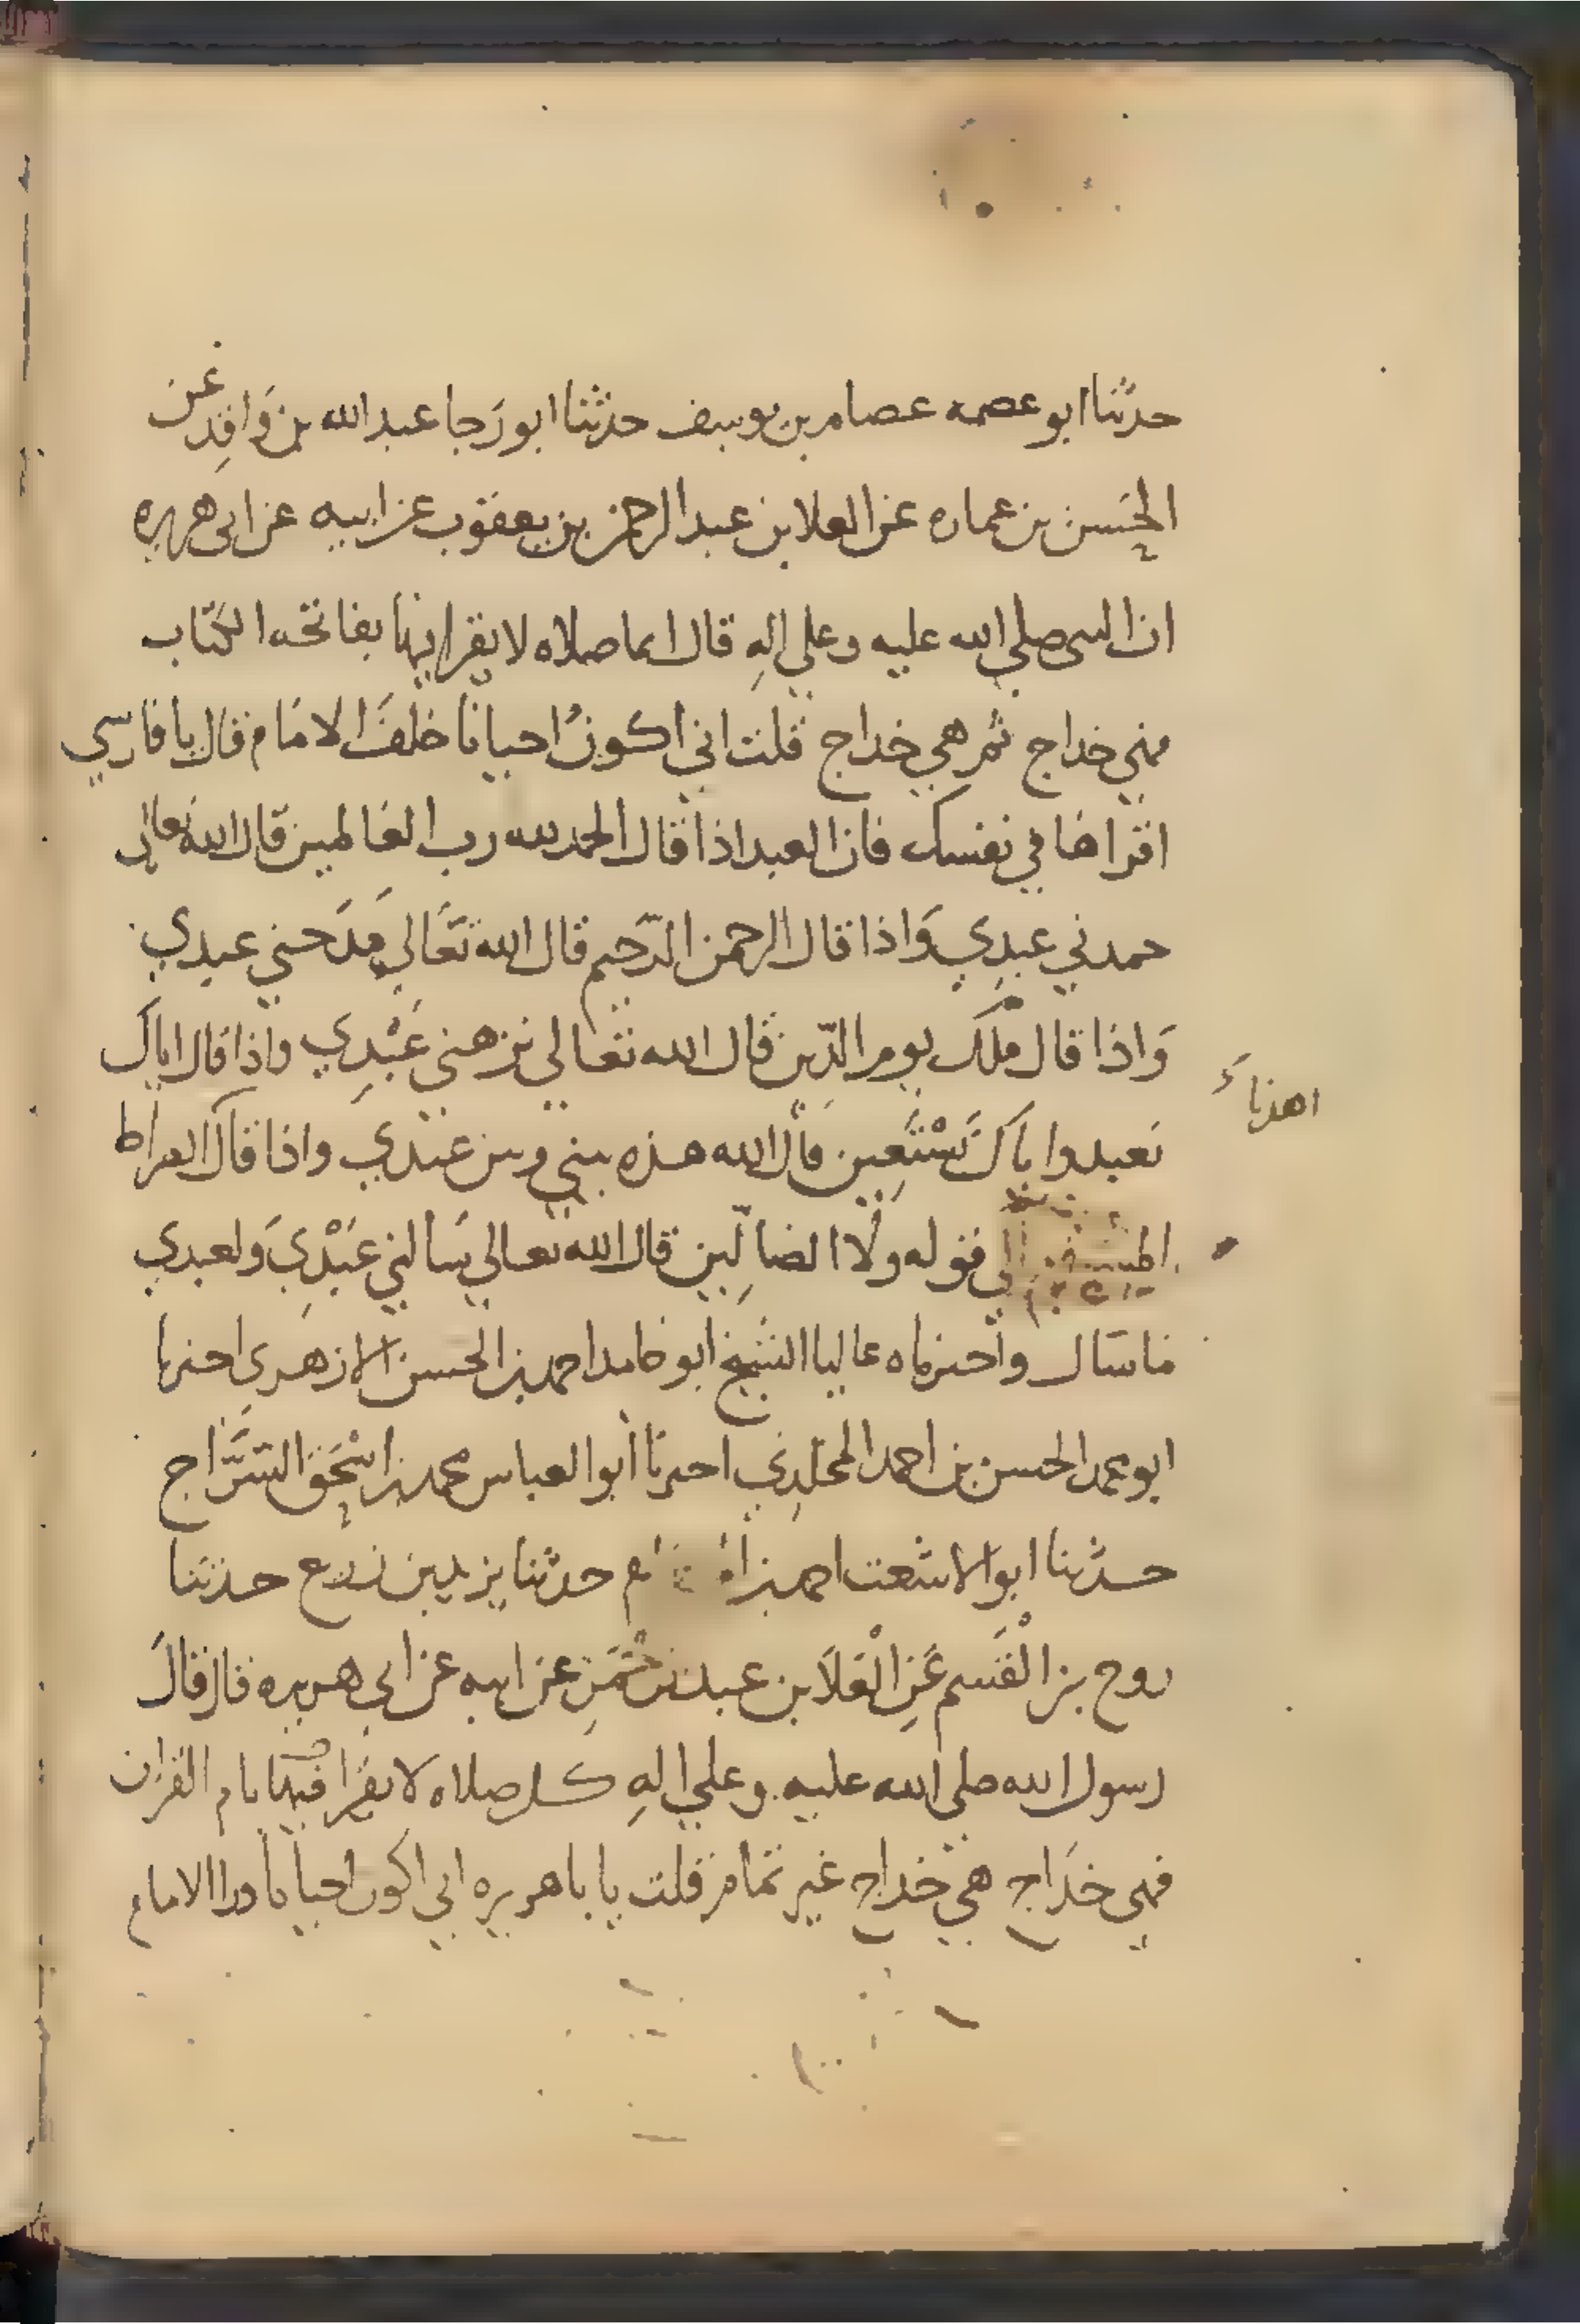 حدثنا ابو عصمه عصام بن يوسف حدثنا ابو رجا عبد الله بن واقد عن
الحسن بن عماره عن العلا بن عبد الرحمن بن يعقوب عن ابيه عن ابى هريره
ان النبى صلي الله عليه وعلي اله قال ايما صلاه لا يقرا فيها بفاتحه الكتاب
فهي خداج ثم هي خداج قلت اني اكون احيانا خلف الامام قال يا فارسي
اقراها في نفسك فان العبد اذا قال الحمد لله رب العالمين قال الله تعالي
حمدني عبدي واذا قال الرحمن الرحيم قال الله تعالي مدحني عبدي
واذا قال ملك يوم الدين قال الله تعالي نزهني عبدي واذا قال اياك
نعبد واياك نستعين قال الله هذه بيني وبين عبدي واذا قال الصراط
اهدنا
المستقيم الي قوله ولا الضالين قال الله تعالي سالني عبدي ولعبدي
ما سال واخبرناه عاليا الشيخ ابو حامد احمد بن الحسن الازهري اخبرنا
ابو محمد الحسن بن احمد المخلدي اخبرنا ابو العباس محمد بن اسحق السراج
حدثنا ابو الاشعث احمد بن حدثنا يزيد بن زريع حدثنا
روح بن القسم عن العلا بن عبد الرحمن عن ابيه عن ابي هريره قال قال
رسول الله صلي الله عليه وعلي اله كل صلاه لا يقرا فيها بام القران
فهي خداج هي خداج غير تمام قلت يا با هريره اني اكون احيانا ورا الامام